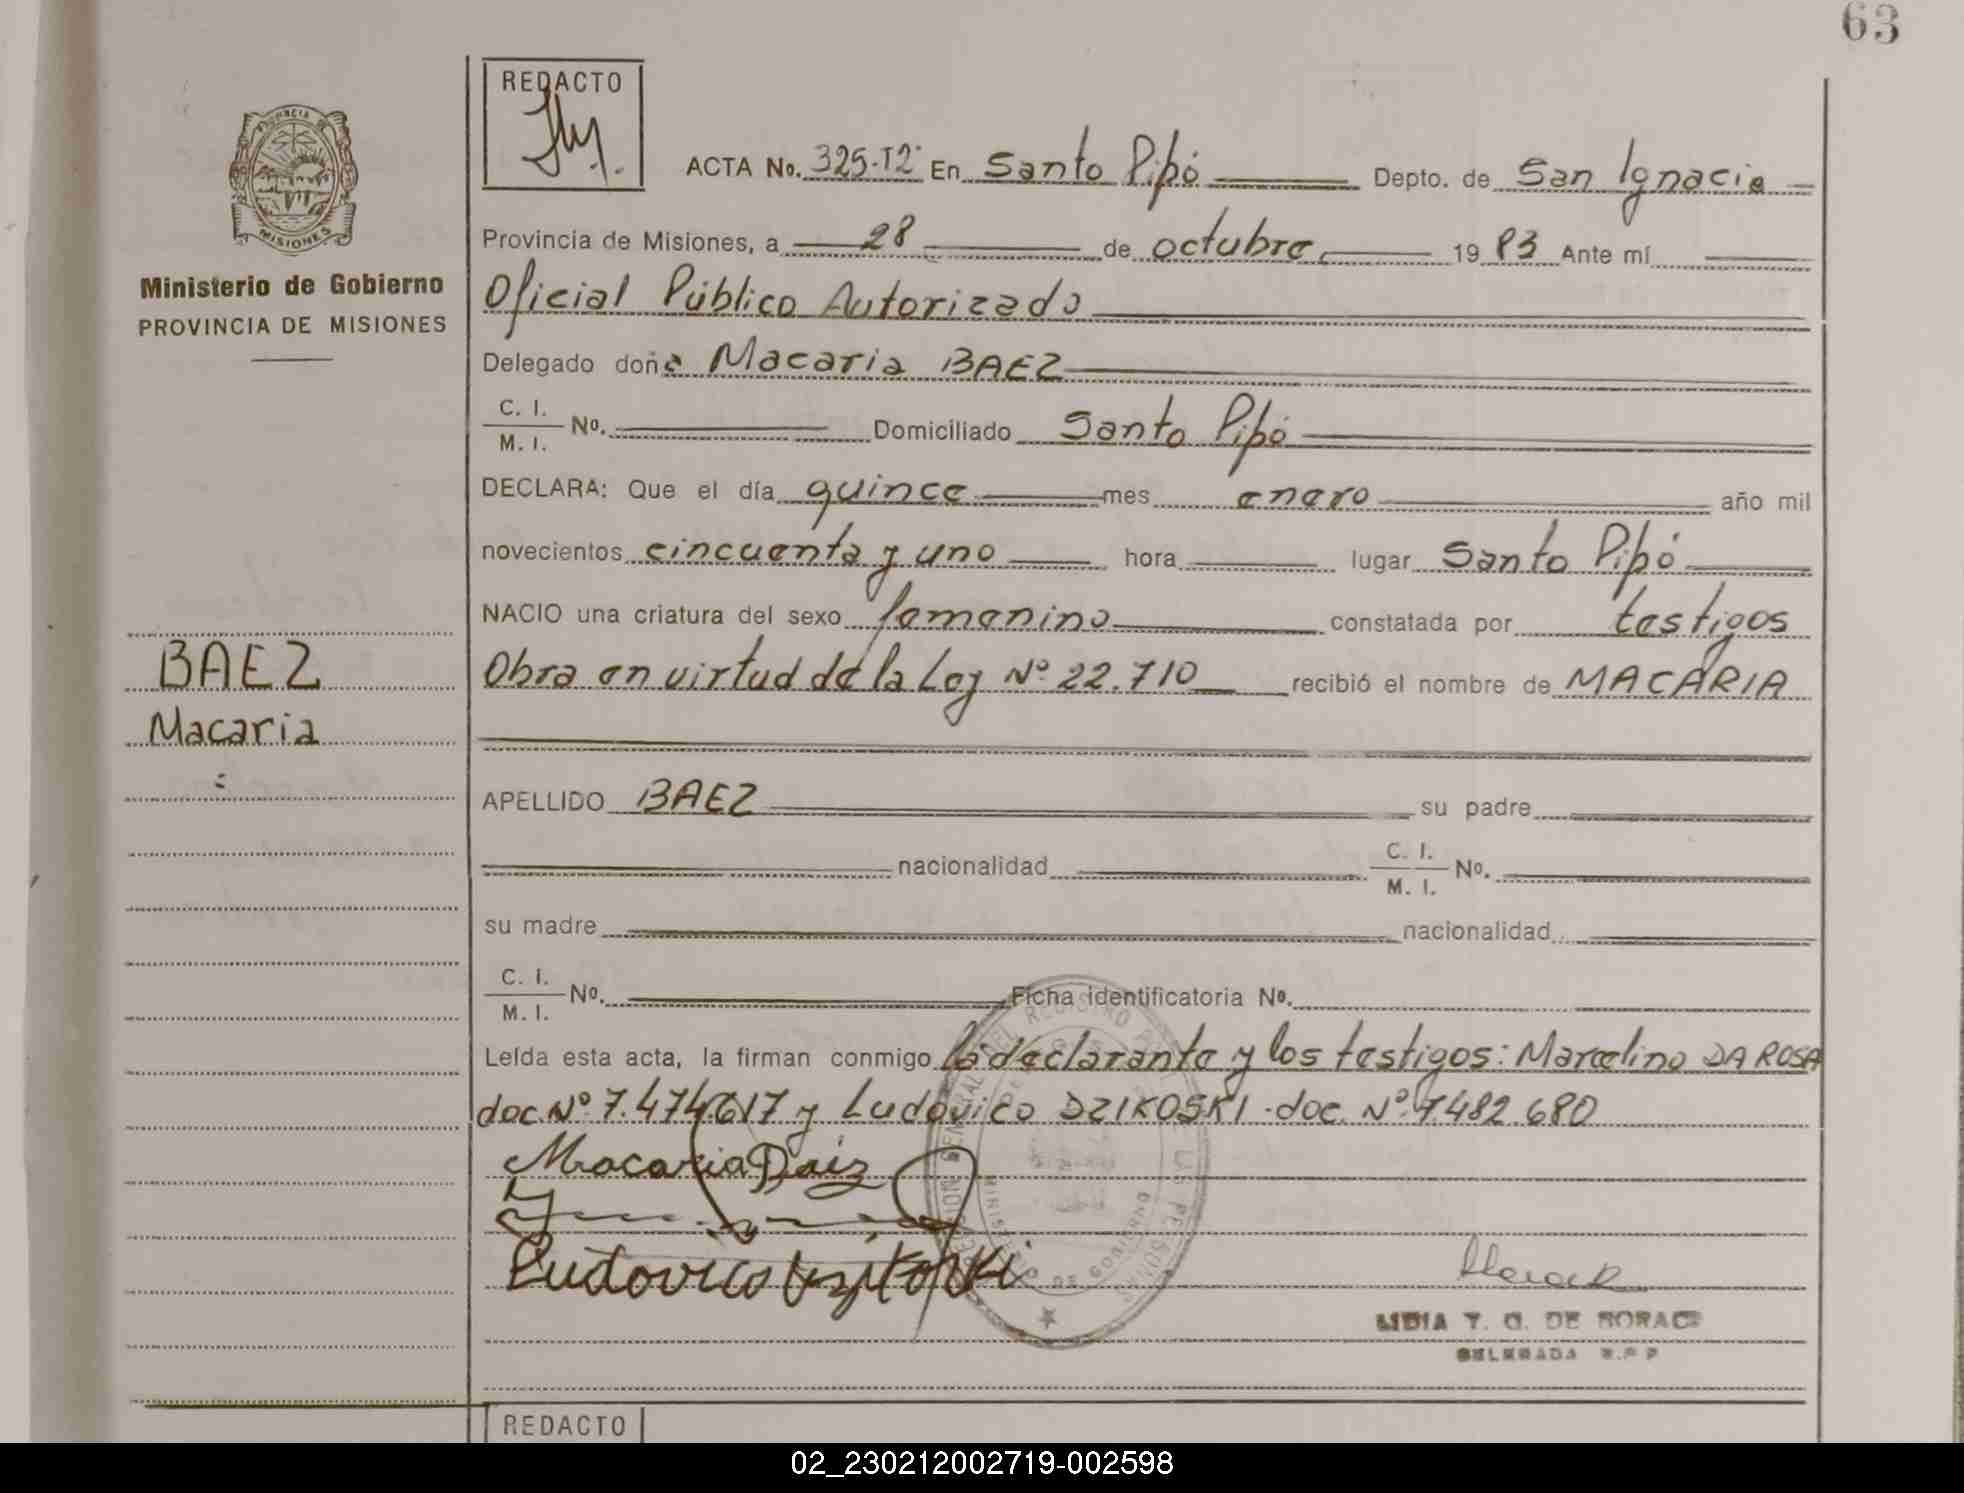 63
REDACTO
PROVINCIA DE
MISIONES
Ministerio de Gobierno
PROVINCIA DE MISIONES
BAEZ
Macaria
ACTA No. 325-T2º En Santo Pipó Depto. de San Ignacio
Provincia de Misiones, a 28 de octubre 1983 Ante mí
Oficial Público Autorizado
Delegado doña Macaria BAEZ
C. I.
M. I. Nº. Domiciliado Santo Pipó
DECLARA: Que el día quince mes enero año mil
novecientos cincuenta y uno hora lugar Santo Pipó
NACIO una criatura del sexo femenino constatada por testigos
Obra en virtud de la Ley Nº 22.710 recibió el nombre de MACARIA
APELLIDO BAEZ su padre
nacionalidad C. I.
M. I. Nº.
su madre nacionalidad
C. I.
M. I. Nº. Ficha identificatoria Nº.
Leída esta acta, la firman conmigo la declarante y los testigos: Marcelino DA ROSA
doc. Nº 7.474.617 y Ludovico DZIKOSKI - doc. Nº 7.482.680
Macaria Baiz
Ludovico
LIDIA T. G. DE
DELEGADA R.P.P
REDACTO
02_230212002719-002598